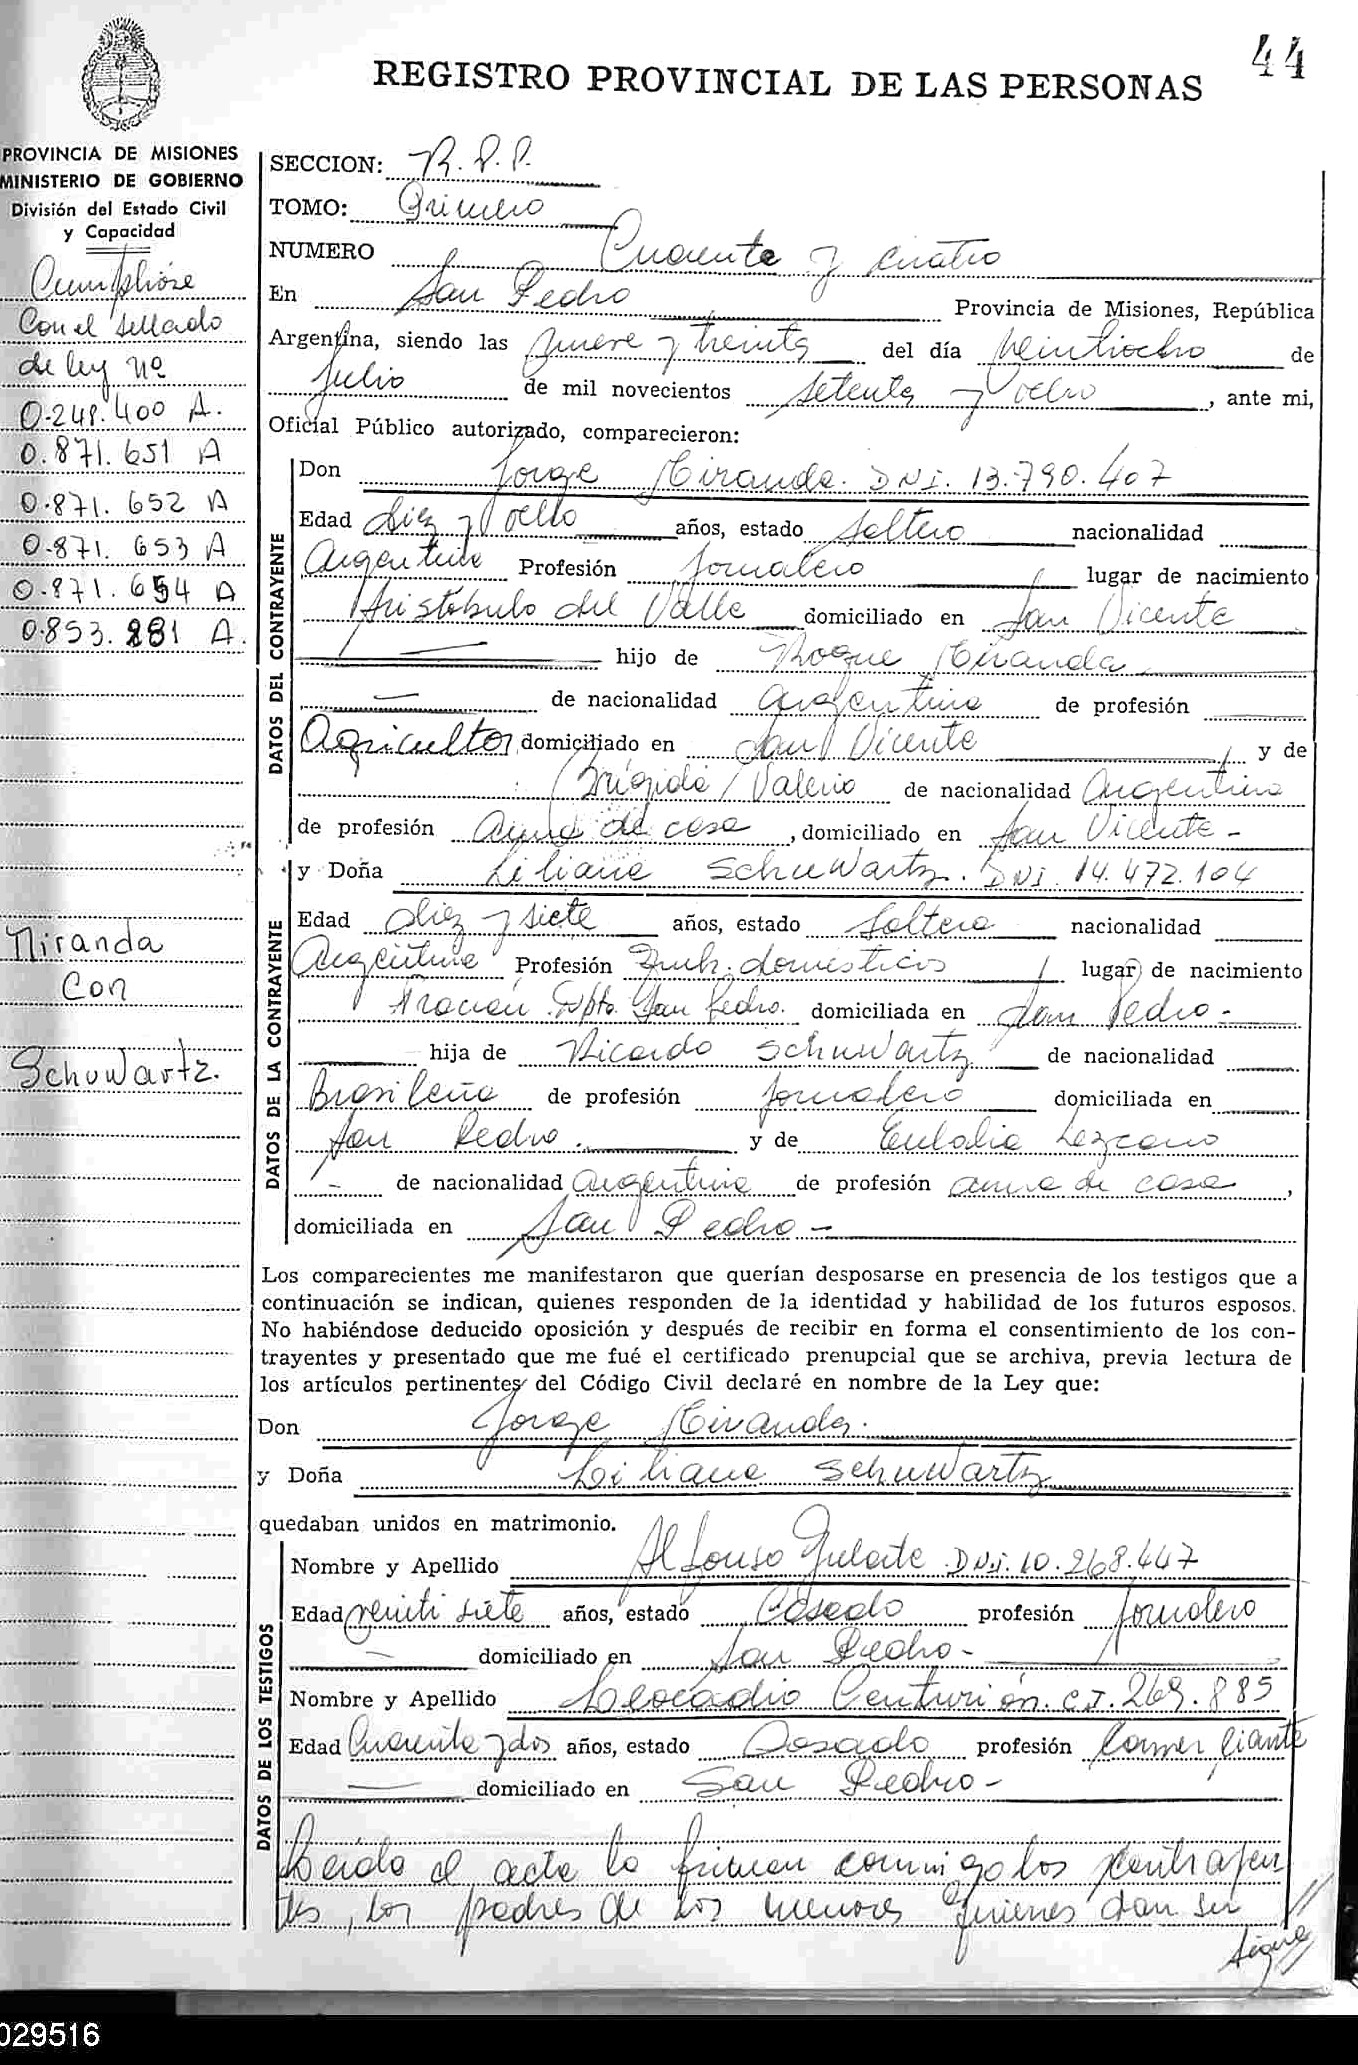 44
REGISTRO PROVINCIAL DE LAS PERSONAS
PROVINCIA DE MISIONES
MINISTERIO DE GOBIERNO
División del Estado Civil
y Capacidad
Cumplióse
Con el sellado
de ley nº
0.248.400 A.
0.871.651 A
0.871.652 A
0.871.653 A
0.871.654 A
0.853.881 A.
Miranda
Con
Schuwartz.
SECCION: R.P.P.
TOMO: Primero
NUMERO Cuarenta y cuatro
En San Pedro Provincia de Misiones, República
Argentina, siendo las nueve y treinta del día veintiocho de
Julio de mil novecientos setenta y ocho, ante mi,
Oficial Público autorizado, comparecieron:
DATOS DEL CONTRAYENTE
Don Jorge Miranda. DNI. 13.790.407
Edad diez y ocho años, estado soltero nacionalidad
Argentina Profesión Jornalero lugar de nacimiento
Aristóbulo del Valle domiciliado en San Vicente
hijo de Roque Miranda
de nacionalidad argentina de profesión
Agricultor domiciliado en San Vicente y de
Brígida Valerio de nacionalidad Argentina
de profesión ama de casa, domiciliado en San Vicente-
DATOS DE LA CONTRAYENTE
y Doña Liliana Schuwartz. DNI. 14.472.104
Edad diez y siete años, estado soltera nacionalidad
Argentina Profesión domésticos lugar de nacimiento
Dpto. San Pedro. domiciliada en San Pedro-
hija de Ricardo Schuwartz de nacionalidad
Brasileña de profesión jornalero domiciliada en
San Pedro. y de Eulalia Lezcano
- de nacionalidad argentina de profesión ama de casa,
domiciliada en San Pedro-
Los comparecientes me manifestaron que querían desposarse en presencia de los testigos que a
continuación se indican, quienes responden de la identidad y habilidad de los futuros esposos.
No habiéndose deducido oposición y después de recibir en forma el consentimiento de los con-
trayentes y presentado que me fué el certificado prenupcial que se archiva, previa lectura de
los artículos pertinentes del Código Civil declaré en nombre de la Ley que:
Don Jorge Miranda.
y Doña Liliana Schuwartz
quedaban unidos en matrimonio.
DATOS DE LOS TESTIGOS
Nombre y Apellido Alfonso DNI. 10.268.447
Edad veinti siete años, estado Casado profesión jornalero
domiciliado en San Pedro-
Nombre y Apellido Leocadio Centurión. C.I. 269.885
Edad Cuarenta y dos años, estado Casado profesión Comerciante
domiciliado en San Pedro-
Leida el acta la firman conmigo los contrayen
tes, los padres de los menores quienes dan su
sigue
029516